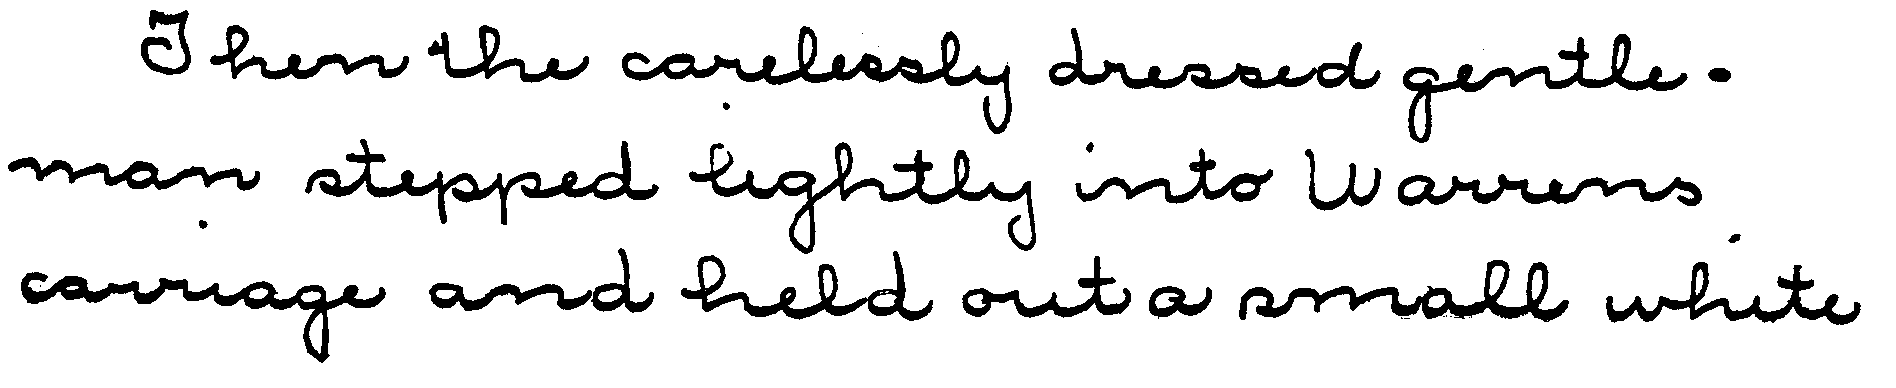 Then the carelessly dressed gentle-
man stepped lightly into Warrens
carriage and held out a small white